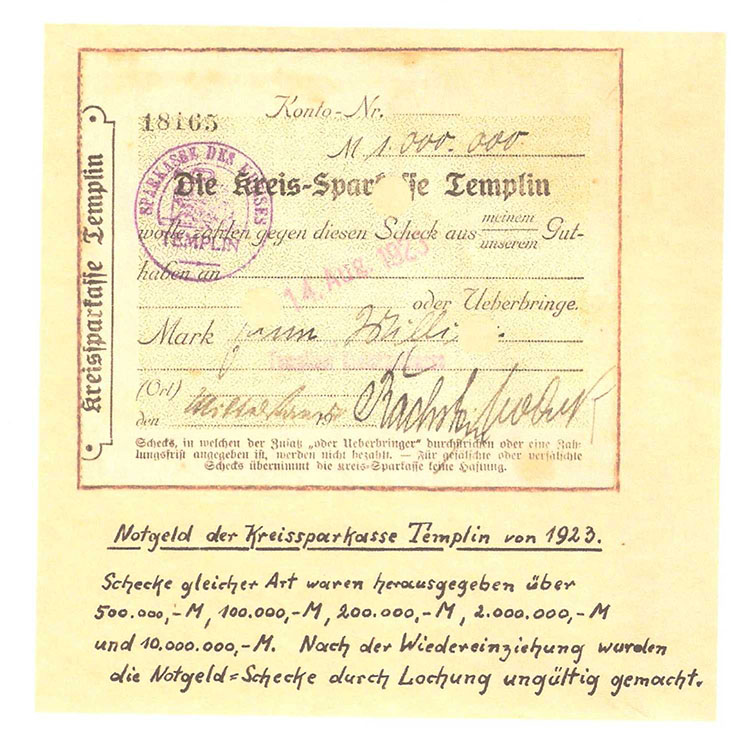 Kreissparkasse Templin
18165
Konto-Nr.
M 1.000.000
SPARKASSE DES KREISES
TEMPLIN
Die Kreis-Sparkasse Templin
wolle zahlen gegen diesen Scheck aus meinem Gut-
unserem
haben an
14. Aug. 1923
oder Ueberbringe.
Mark
(Ort)
den 19
Schecks, in welchen der Zusatz „oder Ueberbringer“ durchstrichen oder eine Zah-
lungsfrist angegeben ist, werden nicht bezahlt. — Für gefälschte oder verfälschte
Schecks übernimmt die Kreis-Sparkasse keine Haftung.
Notgeld der Kreissparkasse Templin von 1923.
Schecke gleicher Art waren herausgegeben über
500.000,-M, 100.000,-M, 200.000,-M, 2.000.000,-M
und 10.000.000,-M. Nach der Wiedereinziehung wurden
die Notgeld=Schecke durch Lochung ungültig gemacht.